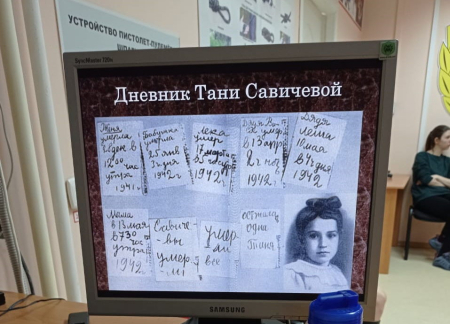 УСТРОЙСТВО ПИСТОЛЕТ-
SyncMaster
Дневник Тани Савичевой
Женя
умерла
28 дек в
12.00 час
утра
1941 г
Бабушка
умерла
25 янв
1942 г
Лека
умер
17 марта
1942
в 13 апр
2 ч ноч
1942
Дядя
Леша
10 мая
в 4 ч дня
1942
Мама
в 13 мая
в 7.30
час
утра
1942 г
Савиче
-вы
умер
-ли
умер
ли
все
осталась
одна
Таня
SAMSUNG